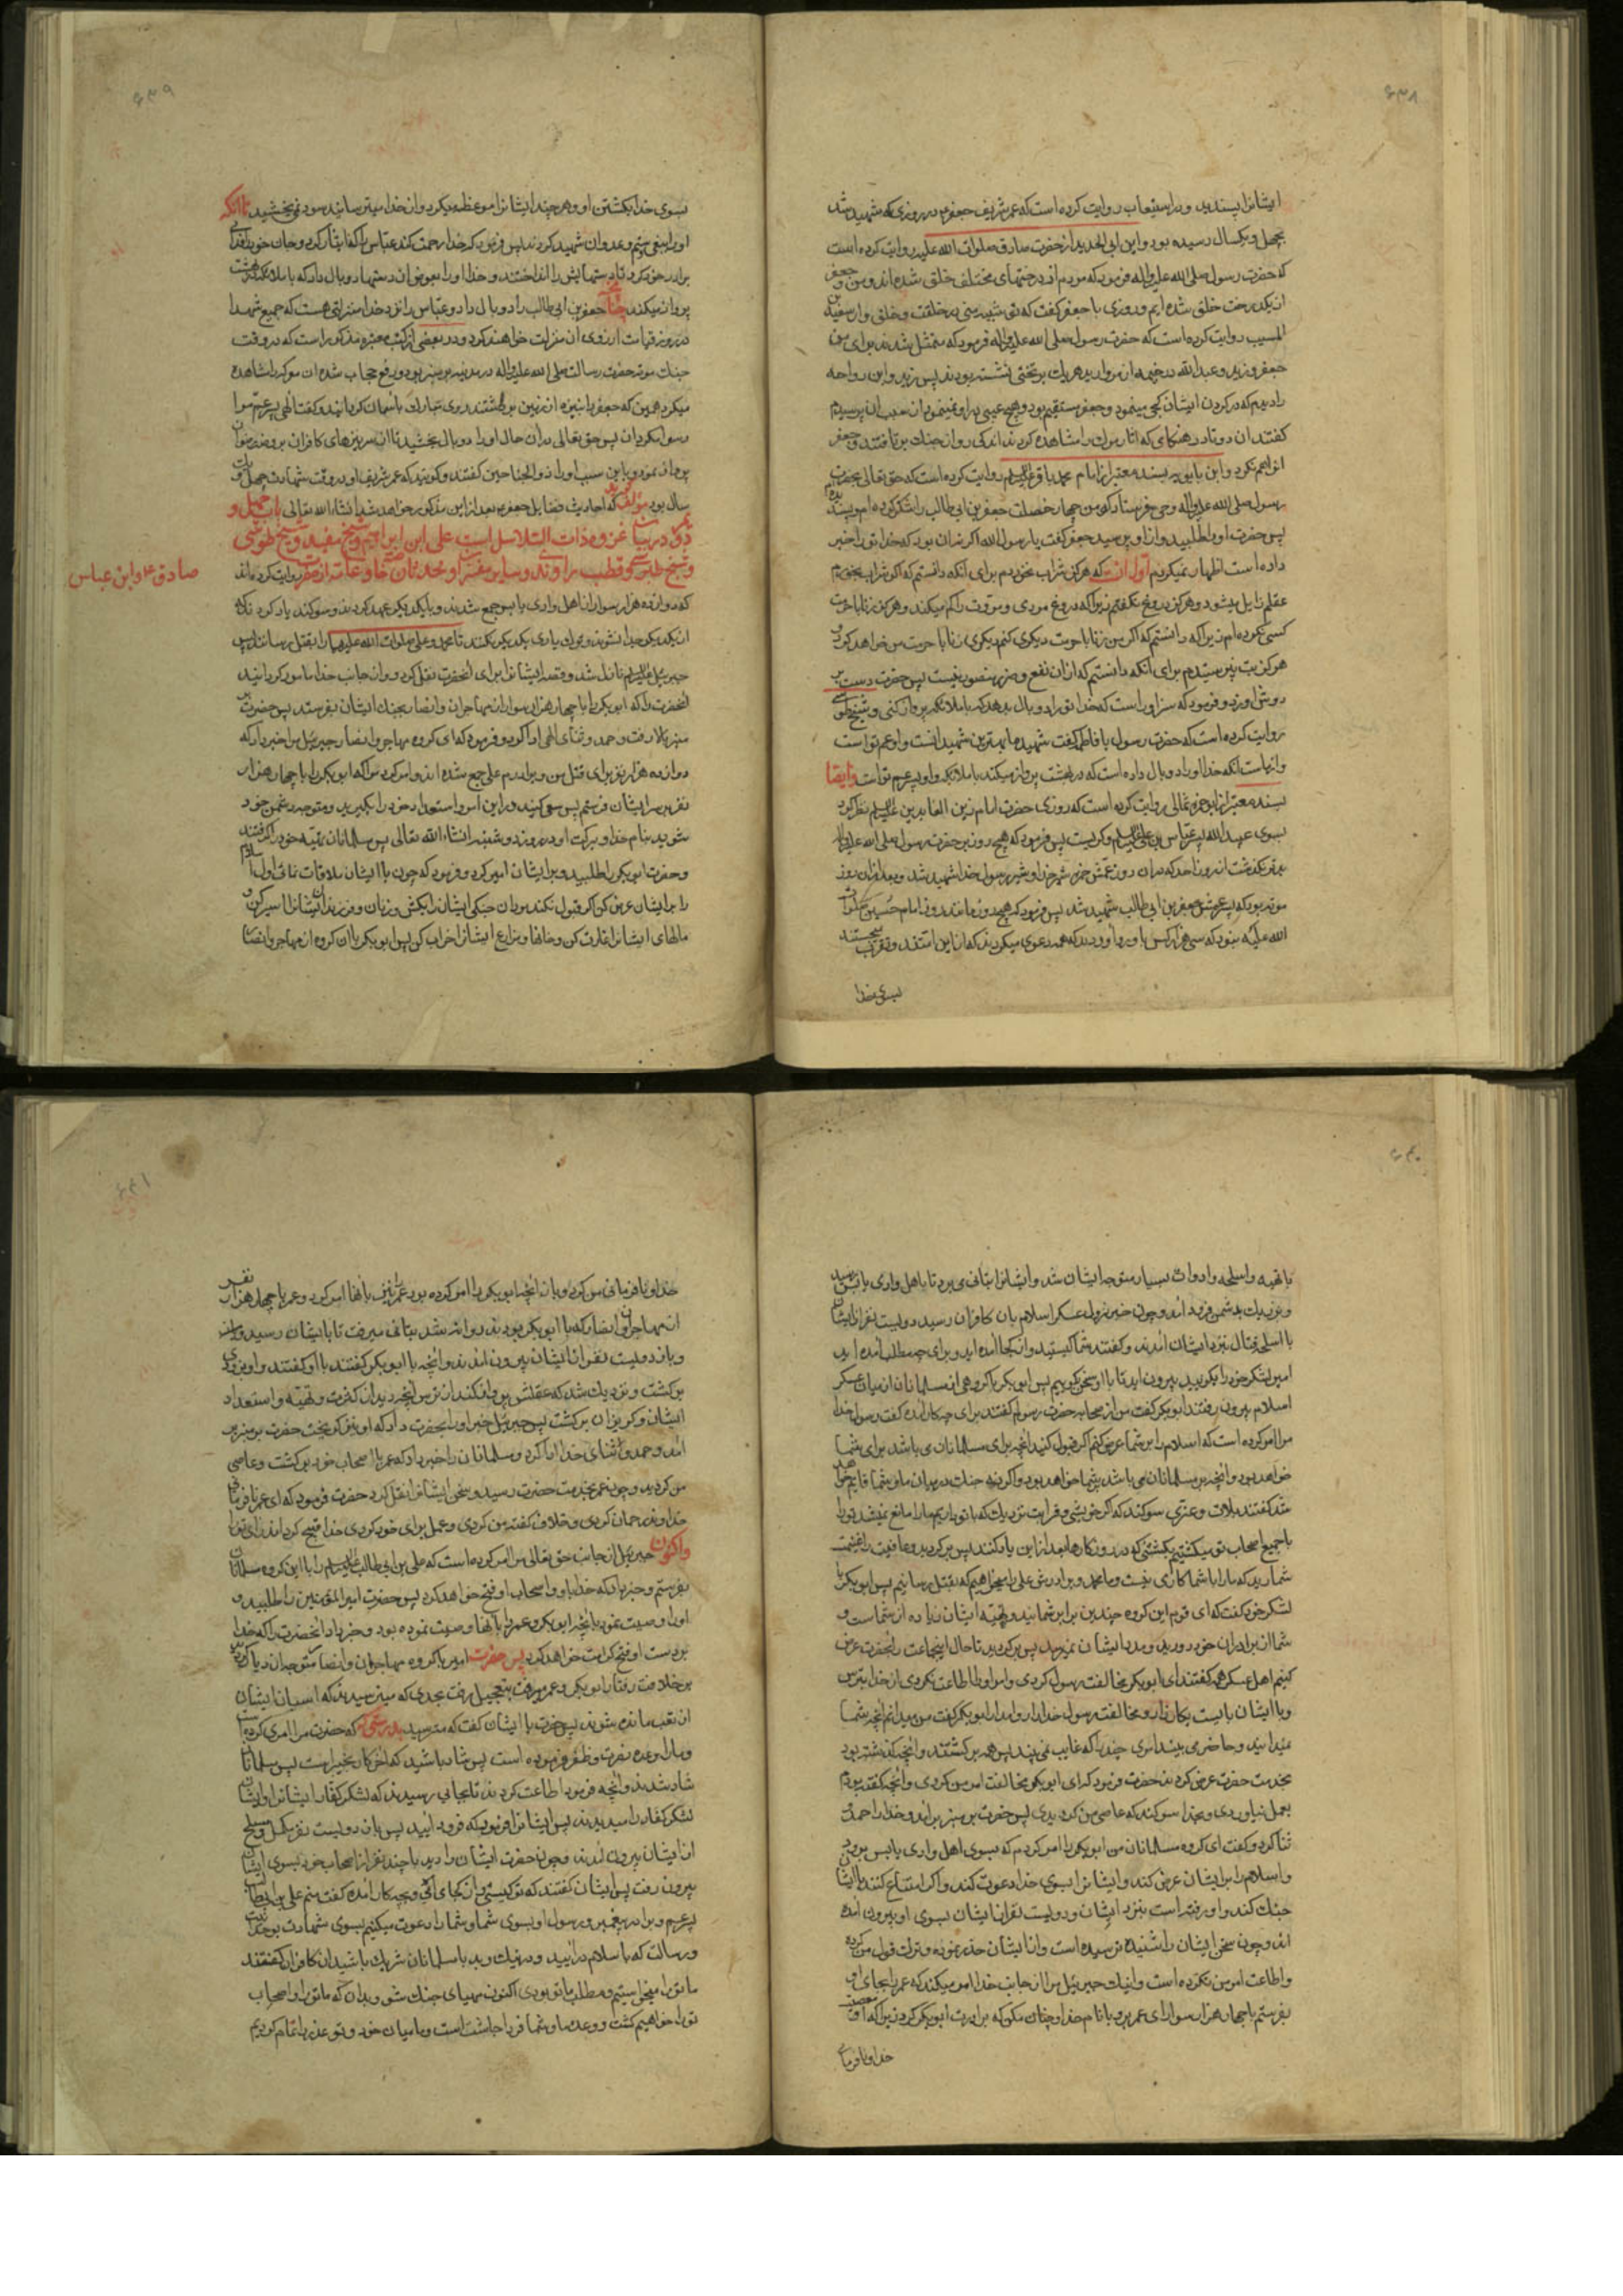 ۶۳۸
ایشانرا پسندید و در استیعاب روایت کرده است که عمر شریف جعفر در روزی که شهید شد
بچهل و یکسال رسیده بود و ابن ابی الحدید از حضرت صادق صلوات الله علیه روایت کرده است
که حضرت رسول صلی الله علیه و اله فرمود که مردم از درختهای مختلف خلق شده اند و من و جعفر
از یکدرخت خلق شده ایم و روزی با جعفر گفت که تو شبیه منی در خلقت و خلق و از سعید بن
المسیب روایت کرده است که حضرت رسول صلی الله علیه و اله فرمود که متمثل شدند برای من
جعفر و زید و عبد الله در خیمه از مروارید هر یک بر تختی نشسته بودند پس زید و ابن رواحه
را دیدم که در گردن ایشان کجی مینمود و جعفر مستقیم بود و هیچ عیبی در او نمینمود از سبب ان پرسیدم
گفتند ان دو تا در هنگامی که اثار مرک را مشاهده کردند اندکی رو از جنك برتافتند و جعفر
انرا هم نکرد و ابن بابویه بسند معتبر از امام محمد باقر علیه السلام روایت کرده است که حق تعالی بحضرت
رسول صلی الله علیه و اله وحی فرستاد که من چهار خصلت جعفر بن ابی طالب را شکر کرده ام و پسندیده ام
پس حضرت او را طلبید و از او پرسید جعفر گفت یا رسول الله اگر نه ان بود که خدا تو را خبر
داده است اظهار نمیکردم اول ان است که هرگز شراب نخوردم برای انکه دانستم که اگر شراب بخورم
عقلم زایل میشود و هرگز دروغ نگفتم زیرا که دروغ مردی و مروت را کم میکند و هرگز زنا با حرمت
کسی نکرده ام زیرا که دانستم که اگر من زنا با حرمت دیگری کنم دیگری زنا با حرمت من خواهد کرد و
هرگز بت نپرستیدم برای انکه دانستم که از ان نفع و ضرر متصور نیست پس حضرت دست بر
دوشش زد و فرمود که سزاوار است که خدا تو را دو بال بدهد که با ملائکه پرواز کنی و شیخ طوسی
روایت کرده است که حضرت رسول با فاطمه گفت شهید ما بهترین شهیدانست و او عم تو است
و از ماست انکه خدا او را دو بال داده است که در بهشت پرواز میکند با ملائکه و او پسر عم تو است و ایضا
بسند معتبر از ابو حمزه ثمالی روایت کرده است که روزی حضرت امام زین العابدین علیه السلام نظر کرد
بسوی عبید الله پسر عباس بن علی علیه السلام و گریست پس فرمود که هیچ روز بر حضرت رسول صلی الله علیه و اله
بدتر نگذشت از روز احد که در ان روز عمش حمزه شیر خدا و شیر رسول خدا شهید شد و بعد از ان روز
موته بود که پسر عمش جعفر بن ابی طالب شهید شد پس فرمود که هیچ روز مانند روز امام حسین صلوات
الله علیه نبود که سی هزار کس با او رو اوردند که همه دعوی میکردند که از این امتند و تقرب میجستند
بسوی خدا
۶۳۹
بسوی خدا بکشتن او و هر چند ایشانرا موعظه میکرد و از خدا میترسانید سود نمیبخشید تا انکه
او را ببغی و ستم و عدوان شهید کردند پس فرمود که خدا رحمت کند عباس را که ایثار کرد و جان خود را فدای
برادر خود کرد تا دستهایش را انداختند و خدا او را بعوض ان دستها دو بال داد که با ملائکه در بهشت
پرواز میکند چنانچه جعفر بن ابی طالب را دو بال داد و عباس را نزد خدا منزلتی هست که جمیع شهدا
در روز قیامت ارزوی ان منزلت خواهند کرد و در بعضی از کتب معتبره مذکور است که در وقت
جنك موته حضرت رسالت صلی الله علیه و اله در مدینه بر منبر بود و رفع حجاب شده ان معرکه را مشاهده
میکرد همین که جعفر را بنیزه از زمین برداشتند روی مبارك باسمان گردانید و گفت الهی پسر عم مرا
رسوا مگردان پس حق تعالی در ان حال او را دو بال بخشید تا از سر نیزهای کافران بروضه رضوان
پرواز نمود و باین سبب او را ذو الجناحین گفتند و گویند که عمر شریف او در وقت شهادت چهل و یك
سال بود مؤلف گوید که احادیث فضایل جعفر بعد از این مذکور خواهد شد انشاء الله تعالی باب چهل و
دوم در بیان غزوه ذات السلاسل است علی ابن ابراهیم و شیخ مفید و شیخ طوسی
و شیخ طبرسی و قطب راوندی و سایر مفسران و محدثان خاصه و عامه از حضرت روایت کرده اند
صادق ع و ابن عباس
که دوازده هزار سوار از اهل وادی یابس جمع شدند و با یکدیگر عهد کردند و سوگند یاد کردند که
از یکدیگر جدا نشوند و ترك یاری یکدیگر نکنند تا محمد و علی صلوات الله علیهما را بقتل رسانند پس
جبرییل علیه السلام نازل شد و قصه ایشانرا برای انحضرت نقل کرد و از جانب خدا مامور گردانید
انحضرت را که ابو بکر را با چهار هزار سوار از مهاجران و انصار بجنك ایشان بفرستد پس حضرت بر
منبر بالا رفت و حمد و ثنای الهی ادا کرد و فرمود که ای گروه مهاجر و انصار جبرییل مرا خبر داد که
دوازده هزار نفر برای قتل من و برادرم علی جمع شده اند و امر کرد مرا که ابو بکر را با چهار هزار
نفر بر سر ایشان فرستم پس سعی کنید در این امر و استعداد خود را بگیرید و متوجه دشمن خود
شوید بنام خدا و برکت او در روز دوشنبه انشاء الله تعالی پس مسلمانان تهیه خود را گرفتند
و حضرت ابو بکر را طلبید و بر ایشان امیر کرد و فرمود که چون با ایشان ملاقات نمائی اول اسلام
را بر ایشان عرض کن اگر قبول نکنند مردان جنگی ایشان را بکش و زنان و فرزندان ایشانرا اسیر کن و
مالهای ایشانرا غارت کن و خانها و مزارع ایشانرا خراب کن پس ابو بکر با ان گروه از مهاجر و انصار با
۶۴۰
با تهیه و اسلحه و ادوات بسیار متوجه ایشان شد و ایشانرا بتانی می برد تا باهل وادی یابس رسید
و نزدیك بدشمن فرود امد و چون خبر نزول عسکر اسلام بان کافران رسید دویست نفر از ایشان
با اسلحه قتال بنزد ایشان امدند و گفتند شما کیستید و از کجا امده اید و برای چه مطلب امده اید
امیر لشکر خود را بگویید بیرون اید تا با او سخن بگوییم پس ابو بکر با گروهی از مسلمانان از میان عسکر
اسلام بیرون رفتند ابو بکر گفت من از صحابه حضرت رسولم گفتند برای چه کار امده گفت رسول خدا
مرا امر کرده است که اسلام را بر شما عرض کنم اگر قبول کنید انچه برای مسلمانان می باشد برای شما
خواهد بود و انچه بر مسلمانان می باشد بر شما خواهد بود و اگر نه جنك در میان ما و شما قایم خواهد
شد گفتند بلات و عزی سوگند که اگر خویشی و قرابت نزدیك که با تو داریم ما را مانع نمیشد تو را
با جمیع اصحاب تو میکشتیم بکشتنی که در روزگارها بعد از این یاد کنند پس برگرد و عافیت را غنیمت
شمارید که ما را با شما کاری نیست و ما محمد و برادرش علی را میخواهیم که بقتل رسانیم پس ابو بکر با
لشکر خود گفت که ای قوم این گروه چندین برابر شمایند و تهیه ایشان زیاده از شماست و
شما از برادران خود دورید و مدد ایشان نمیرسد پس برگردید تا حال اینجماعت را بحضرت عرض
کنیم اهل عسکر همه گفتند ای ابو بکر مخالفت رسول کردی و امر او را اطاعت نکردی از خدا بترس
و با ایشان بایست بکارزار و مخالفت رسول خدا را روا مدار ابو بکر گفت من میدانم انچه شما
نمیدانید و حاضر می بیند امری چند را که غایب نمی بیند پس همه برگشتند و انچه گذشته بود
بخدمت حضرت عرض کردند حضرت فرمود که ای ابو بکر مخالفت امر من کردی و انچه گفته بودم
بعمل نیاوردی و بخدا سوگند که عاصی من گردیدی پس حضرت بر منبر برامد و خدا را حمد و
ثنا کرد و گفت ای گروه مسلمانان من ابو بکر را امر کردم که بسوی اهل وادی یابس برود
و اسلام را بر ایشان عرض کند و ایشانرا بسوی خدا دعوت کند و اگر امتناع کنند با ایشان
جنك کند و او رفته است بنزد ایشان و دویست نفر از ایشان بسوی او بیرون امده
اند و چون سخن ایشان را شنیده ترسیده است و از ایشان حذر نموده و ترك قول من کرده
و اطاعت امر من نکرده است و اینك جبرییل مرا از جانب خدا امر میکند که عمر را بجای او
بفرستم با چهار هزار سوار ای عمر برو با نام خدا و چنان مکن که برادرت ابو بکر کرد زیرا که او معصیت
خدا و نافرمانی
۶۴۱
خدا و نافرمانی من کرد و بان انچه ابو بکر را امر کرده بود عمر را نیز بانها امر کرد و عمر با چهار هزار نفر
از مهاجران و انصار که با ابو بکر بودند روانه شد بتانی میرفت تا با ایشان رسید
و باز دویست نفر از ایشان بیرون امدند و انچه با ابو بکر گفتند با او گفتند و او بزودی
برگشت و نزدیك شد که عقلش پرواز کند از ترس انچه دید از کثرت و تهیه و استعداد
ایشان و گریزان برگشت پس جبرییل خبر او را بحضرت داد که او نیز گریخت حضرت بر منبر بر
امد و حمد و ثنای خدا ادا کرد و مسلمانان را خبر داد که عمر با اصحاب خود برگشت و عاصی
من گردید و چون عمر بخدمت حضرت رسید و سخن ایشانرا نقل کرد حضرت فرمود که ای عمر نافرمانی
خداوند رحمان کردی و خلاف گفته من کردی و عمل برای خود کردی خدا قبیح گرداند رای تو را
و اکنون جبرییل از جانب حق تعالی مرا امر کرده است که علی بن ابی طالب علیه السلام را با این گروه مسلمانان
بفرستم و خبر داد که خدا با او و اصحاب او فتح خواهد کرد پس حضرت امیر المؤمنین را طلبید و
او را وصیت نمود بانچه ابو بکر و عمر را بانها وصیت نموده بود و خبر داد انحضرت را که خدا
بر دست او فتح کرامت خواهد کرد پس حضرت امیر با گروه مهاجران و انصار متوجه ان دیار گردید
بر خلاف رفتار ابو بکر و عمر میرفت بتعجیل میرفت بحدی که میترسیدند که اسبان ایشان
از تعب مانده شوند پس حضرت با ایشان گفت که مترسید بدرستی که حضرت مرا امری کرده است
و مرا وعده نصرت و ظفر فرموده است پس شاد باشید که اخر کار بخیر است پس مسلمانان
شاد شدند و انچه فرمود اطاعت کردند تا بجائی رسیدند که لشکر کفار ایشانرا و ایشان
لشکر کفار را میدیدند پس ایشانرا فرمود که فرود ایید پس باز دویست نفر مکمل و مسلح
از ایشان بیرون امدند و چون حضرت ایشان را دید با چند نفر از اصحاب خود بسوی ایشان
بیرون رفت پس ایشان گفتند که تو کیستی و از کجا امدی و بچه کار امده گفت منم علی بن ابی طالب
پسر عم و برادر پیغمبر و رسول او بسوی شما و شما را دعوت میکنیم بسوی شهادت بوحدانیت
و رسالت که با سلام درایید و در نیك و بد با مسلمانان شریك باشید ان کافران گفتند
ما تو را میخواستیم و مطلب ما تو بودی اکنون مهیای جنك شو و بدان که ما تو را و اصحاب
تو را خواهیم کشت و وعده ما و شما فردا چاشت است و ما میان خود و تو عذر را تمام کردیم